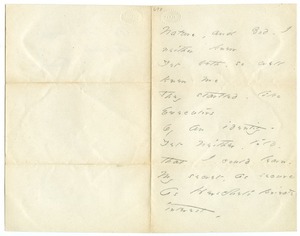 Nature, and God, I
neither knew
Yet both so well
knew me
They startled, like
Executors
Of An identity.
Yet neither told,
that I could learn,
My secret as secure
As Herschel's private
interest